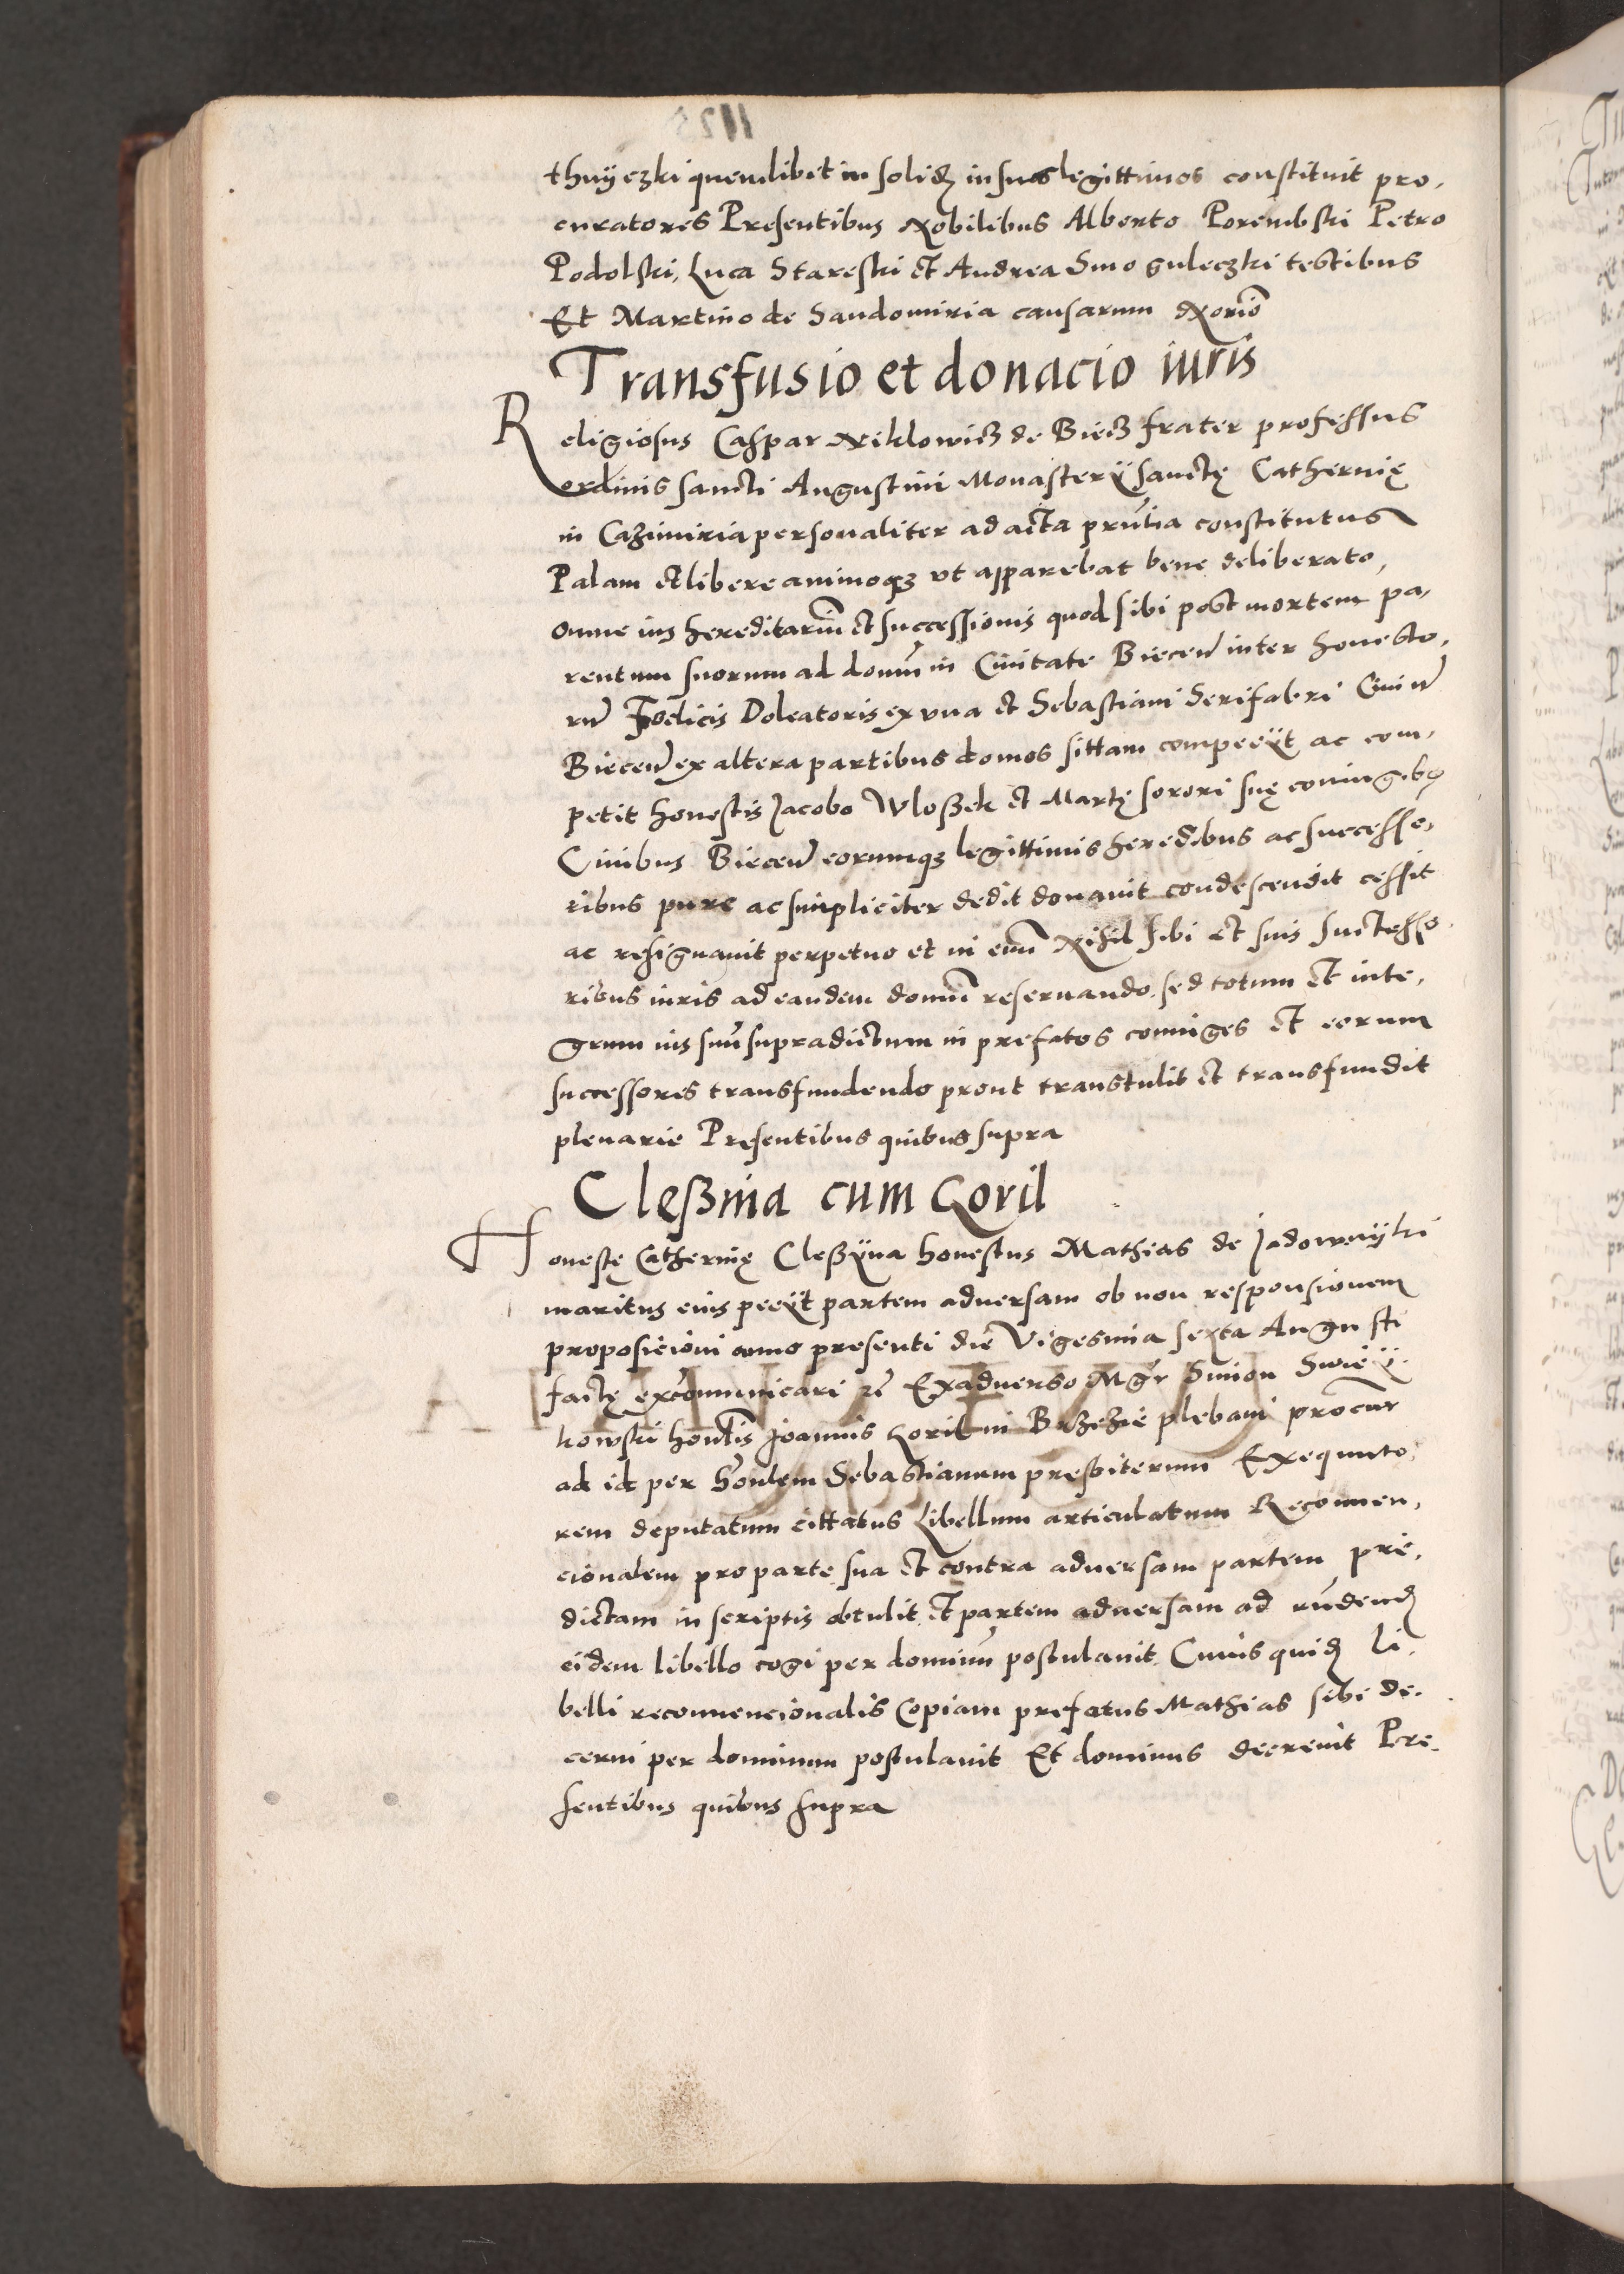 thuy czki quemlibet in solid in suos legittimos constituit pro,
curatores Presentibus Nobilibus Alberto Porembski Petro
Podolski, Luca Stareski et Andrea Smo guleczki testibus
Et Martino de Sandomiria causarum Norio
Transfusio et donacio iuris
Religiosus Caspar Niklowicz de Biecz frater professus
ordinis sancti Augustini Monasterÿ sanctę Catherinę
in Cazimiria personaliter ad acta prntia constitutus
Palam et libere animoqz vt apparebat bene deliberato,
omne ius hereditarium et successionis quod sibi post mortem pa,
rentum suorum ad domum in Ciuitate Biecen inter honesto,
rum Foelicis Doleatoris ex vna et Sebastiani Serifabri Ciuium
Biecen ex altera partibus domos sittam compecÿt ac com,
petit honestis Jacobo Wloßek et Martę sorori suę coniugibus
Ciuibus Biecen eorumqz legittimis heredibus ac successo,
ribus pure ac simpliciter dedit donauit condescendit cessit
ac resignauit perpetuo et in euum Nihil sibi et suis suctesso,
ribus iuris ad eandem domum reseruando, sed totum et inte,
grum ius suum supradictum in prefatos coniuges et eorum
successores transfundendo prout transtulit et transfundit
plenarie Presentibus quibus supra
Cleßina cum Goril
Honestę Catherinę Cleßÿna honestus Mathias de Jadownÿki
maritus eius pecÿt partem aduersam ob non responsionem
proposicioni anno presenti die Vigesima sexta Augusti
factę excomunicari rc Exaduerso Mgr Simon Swiey
kowski honlis Joannis Goril in Brzezie plebani procur
ad id per honlem Sebastianum presbiterum Exequuto,
rem deputatum cittatus Libellum articulatum Reconuen,
cionalem pro parte sua et contra aduersam partem pre,
dictam in scriptis obtulit et partem aduersam ad rndend
eidem libello cogi per dominum postulauit Cuius quid li,
belli reconuencionalis Copiam prefatus Mathias sibi de,
cerni per dominum postulauit Et dominus decreuit Pre,
sentibus quibus supra